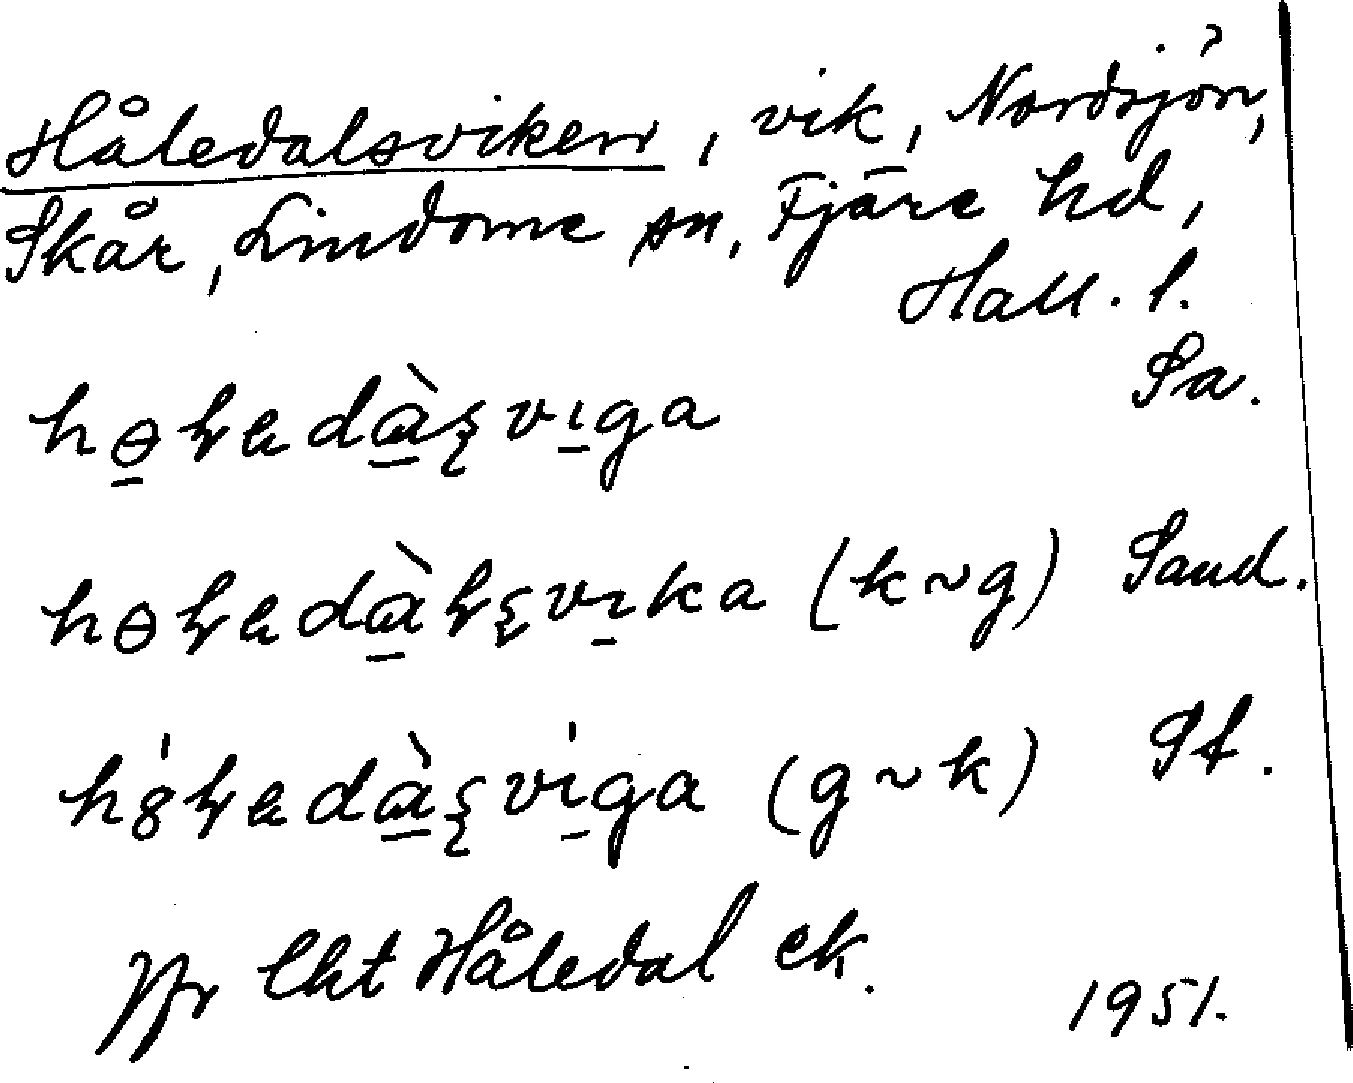 Håledalsviken, vik, Nordsjön,
Skår, Lindome sn, Fjäre hd,
Hall. l.
hɵ̲ɽɐdɑ̲̀ʂvı̲ga Sa.
hɵɽɐdɑ̲̀ɽʂvı̲ka (k~g) Sand.
h8́ɽɐdɑ̲̀ʂví̲ga (g~k) St.
Jfr Ekt Håledal ek.
1951.